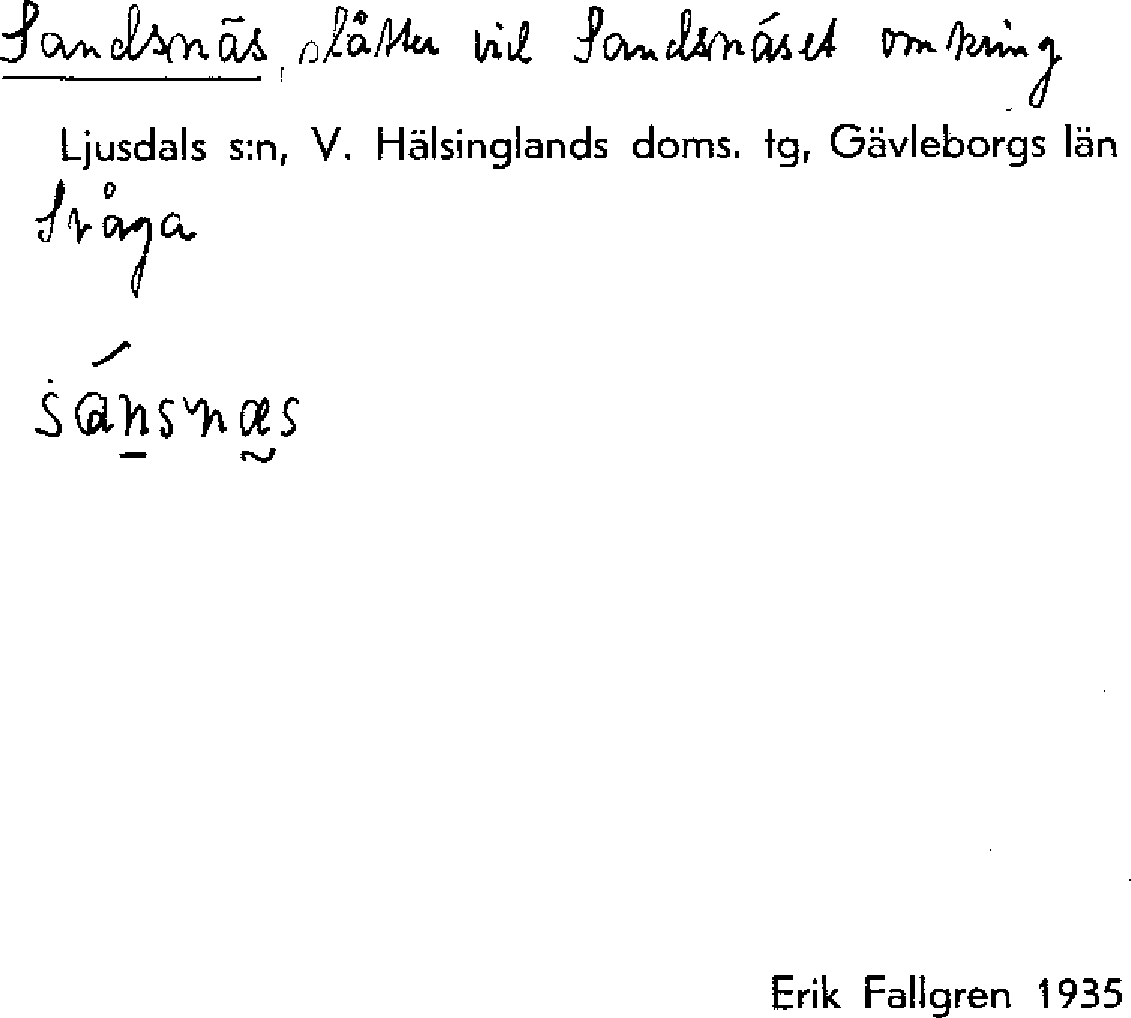 Sandsnäs, slåtter vid Sandsnäset omkring
Ljusdals s:n, V. Hälsinglands doms. tg, Gävleborgs län
Svåga
sánsnæs
Erik Fallgren 1935